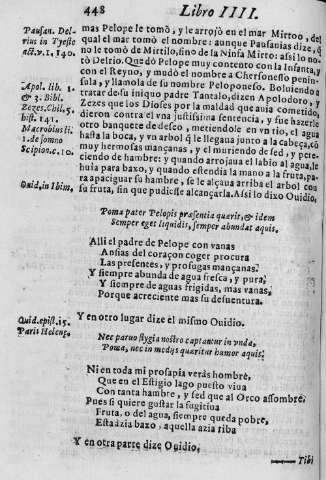 448 Libro IIII.
Pausan. Del-
rius in Tyeste
act. v. 1, 140.
Apol. lib. 1
& 3. Bibl.
Zezes. Chil. 5.
hist. 141.
Macrobius li.
1. de somno
Scipion. c. 10.
Ouid, in Ibim,
mas Pelope le tomò, y le arrojò en el mar Mirtoo, del
qual el mar tomò el nombre: aunque Pausanias dize, q̃
no le tomò de Mirtilo, sino de la Ninfa Mirto: assi lo no-
tò Delrio. Que dó Pelope muy contento con la Infanta, y
con el Reyno, y mudò el nombre a Chersonesso penin-
sula, y llamola de su nombre Peloponeso. Boluiendo a
tratar de su iniquo padre Tantalo, dizen Apolodoro, y
Zezes que los Dioses por la maldad que auia cometido,
dieron contra el vna justissima sentencia, y fue hazerle
otro banquete de desseo, metiendole en vn rio, el agua
hasta la boca, y vn arbol q̃ le llegaua junto a la cabeça, cõ
muy hermosas mançanas, y el muriendo de sed, y pere-
ciendo de hambre: y quando arrojaua el labio al agua, le
huia para baxo, y quando estendia la mano a la fruta, pa-
ra apaciguar su hambre, se le alçaua arriba el arbol con
su fruta, sin que pudiesse alcançarla. Assi lo dixo Ouidio,
Poma pater Pelopis præsentia quærit, & idem
Semper eget liquidis, semper abundat aquis.
Alli el padre de Pelope con vanas
Ansias del coraçon coger procura
Las presentes, y profugas mançanas.
Y siempre abunda de agua fresca, y pura,
Y siempre de aguas frigidas, mas vanas,
Porque acreciente mas su desuentura.
Ouid. epist. 15.
Paris Helenæ,
Y en otro lugar dize el mismo Ouidio.
Nec paruo stygia nostro captantur in vnda,
Poma, nec in medijs quæritur humor aquis.
Ni en toda mi prosapia veràs hombre,
Que en el Estigio lago puesto viua
Con tanta hambre, y sed que al Orco assombre,
Pues si quiere gustar la fugitiua
Fruta, o del agua, siempre queda pobre,
Esta àzia baxo, aquella azia riba
Y en otra parte dize Ouidio,
Tibi